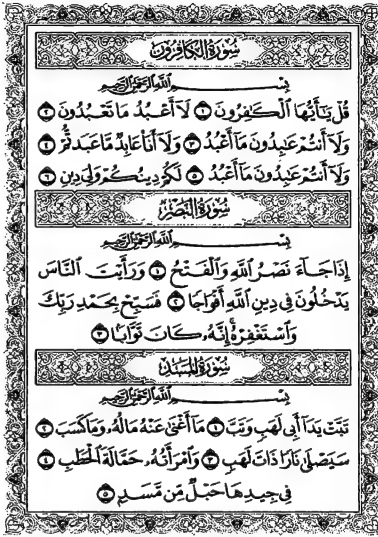 سُورَةُ الكَافِرُونَ
بِسْمِ اللَّهِ الرَّحْمَٰنِ الرَّحِيمِ
قُلْ يَا أَيُّهَا الْكَافِرُونَ ١ لَا أَعْبُدُ مَا تَعْبُدُونَ ٢
وَلَا أَنتُمْ عَابِدُونَ مَا أَعْبُدُ ٣ وَلَا أَنَا عَابِدٌ مَّا عَبَدتُّمْ ٤
وَلَا أَنتُمْ عَابِدُونَ مَا أَعْبُدُ ٥ لَكُمْ دِينُكُمْ وَلِيَ دِينِ ٦
سُورَةُ النَّصْرِ
بِسْمِ اللَّهِ الرَّحْمَٰنِ الرَّحِيمِ
إِذَا جَاءَ نَصْرُ اللَّهِ وَالْفَتْحُ ١ وَرَأَيْتَ النَّاسَ
يَدْخُلُونَ فِي دِينِ اللَّهِ أَفْوَاجًا ٢ فَسَبِّحْ بِحَمْدِ رَبِّكَ
وَاسْتَغْفِرْهُ ۚ إِنَّهُ كَانَ تَوَّابًا ٣
سُورَةُ المَسَد
بِسْمِ اللَّهِ الرَّحْمَٰنِ الرَّحِيمِ
تَبَّتْ يَدَا أَبِي لَهَبٍ وَتَبَّ ١ مَا أَغْنَىٰ عَنْهُ مَالُهُ وَمَا كَسَبَ ٢
سَيَصْلَىٰ نَارًا ذَاتَ لَهَبٍ ٣ وَامْرَأَتُهُ حَمَّالَةَ الْحَطَبِ ٤
فِي جِيدِهَا حَبْلٌ مِّن مَّسَدٍ ٥